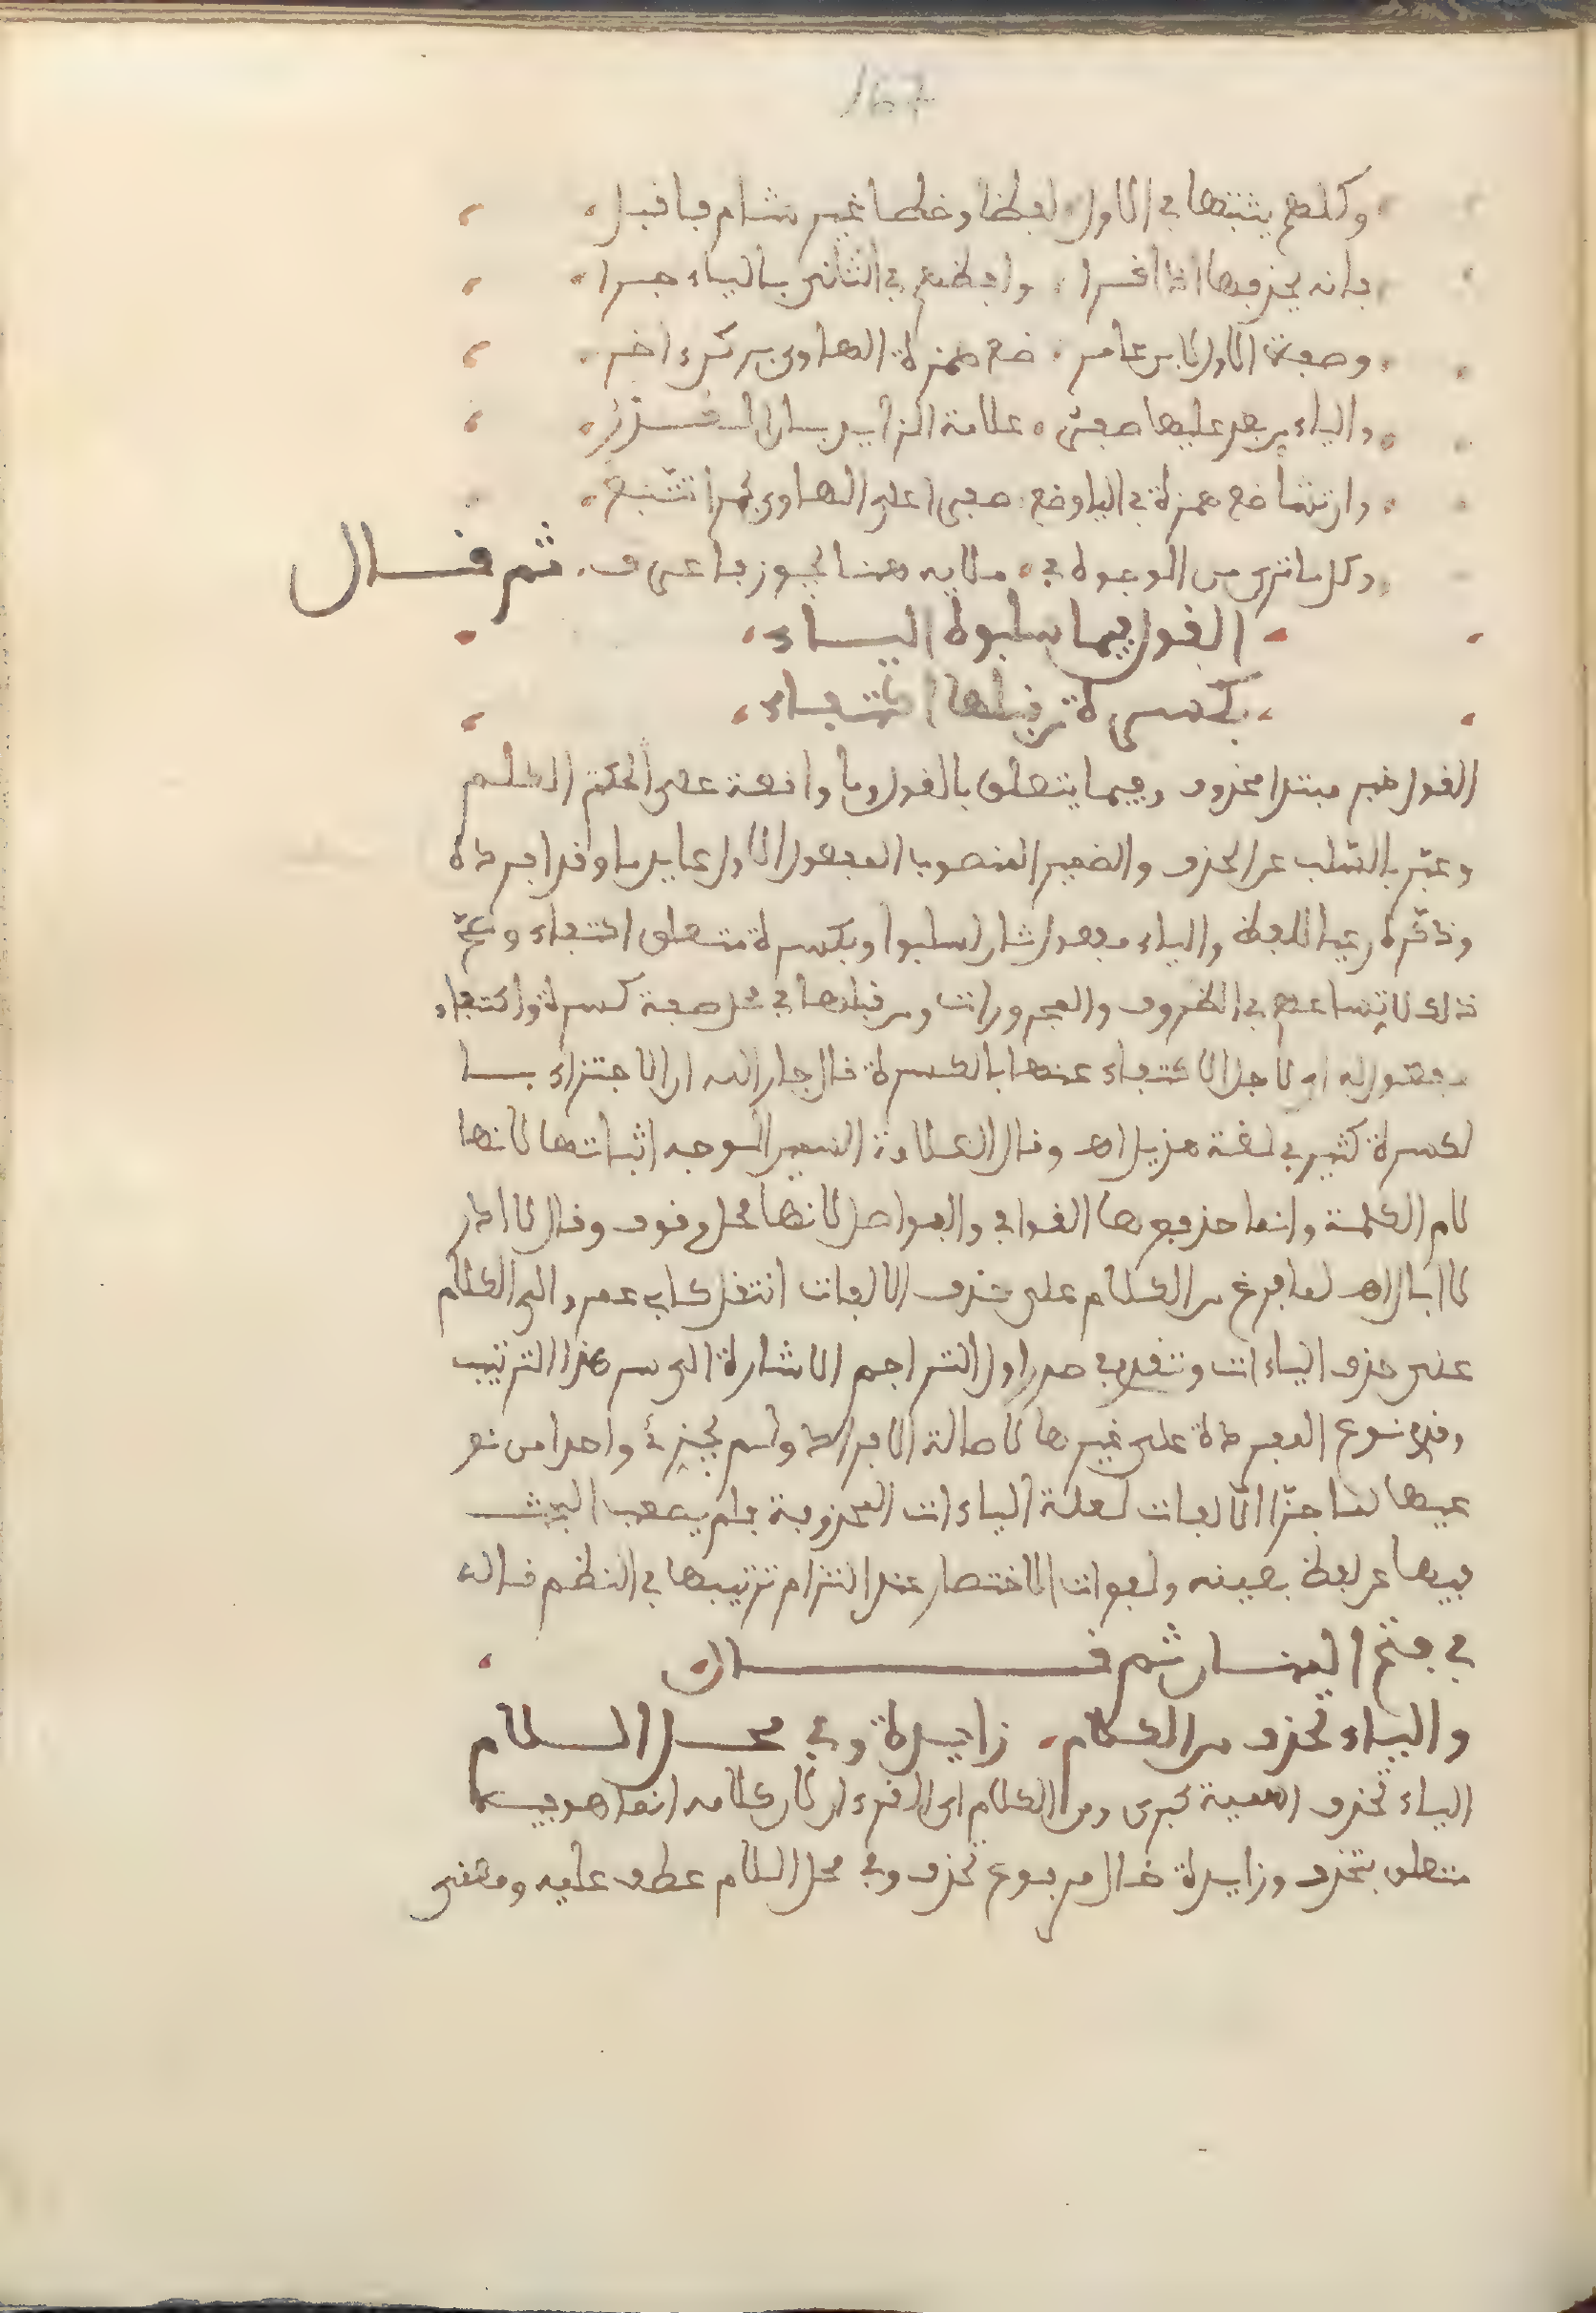 167
وكلهم يثبتها في الاول لفظا وخطا غير شام فاقبل
فانه يحذفها اذا قرا والحظهم في الثاني بالياء جرا
وصفة الاول لابن عامر ضع همزة الهاوي بر اخر
والياء من بعد عليها صفر علامة الزايد
وان تشا ضع همزة في اليا وضع صفرا على الهاوي تتبع
وكل ما ترى من الوجوه في ملايه هنا يجوز فاعرف ثم قال
القول فيما سلبوه الياء
بكسرة من قبلها اكتفاء
القول خبر مبتدا محذوف وفيما يتعلق بالقول وما واقعة على الحكم الكلم
وعبر بالسلب عن الحذف والضمير المنصوب المفعول الاول عايد ما وقد افرده
وذكره رعيا للفظ والياء مفعول ثان لسلبوا وبكسرة متعلق اكتفاء وصح
ذلك لاتساعهم في الظروف والمجرورات ومن قبلها في محل صفة كسرة واكتفاء
مفعول له اي لاجل الاكتفاء عنها بالكسرة قال جار الله ان الاجتزاء با
لكسرة كثير في لغة هذيل اهـ وقال الوجه اثباتها لانها
لام الكلمة وانما حذفوها القوافي والفواصل لانها محل وقوف وقال لا ادر
لا ابال اهـ لما فرغ من الكلام على حذف الالفات انتقل كابي عمرو الى الكلام
على حذف الياءات وتقدم في صدر اول التراجم الاشارة الى سر هذا الترتيب
وقدم نوع المفردة على غيرها لاصالة الافراد ولم يجزئ واحدا من نو
عيها لما جزا الالفات لعلة الياءات المحذوفة فلم يصعب البحث
فيها عن لفظ بعينه ولفوات الاختصار عند التزام ترتيبها في النظم قاله
في فتح المنان ثم قال
والياء تحذف من الكلام زايدة وفي محل اللام
الياء تحذف اسمية كبرى ومن الكلام اي القرءان لان كلامه انما هو فيه
متعلق بتحذف وزايدة حال مرفوع تحذف وفي محل اللام عطف عليه ومعنى